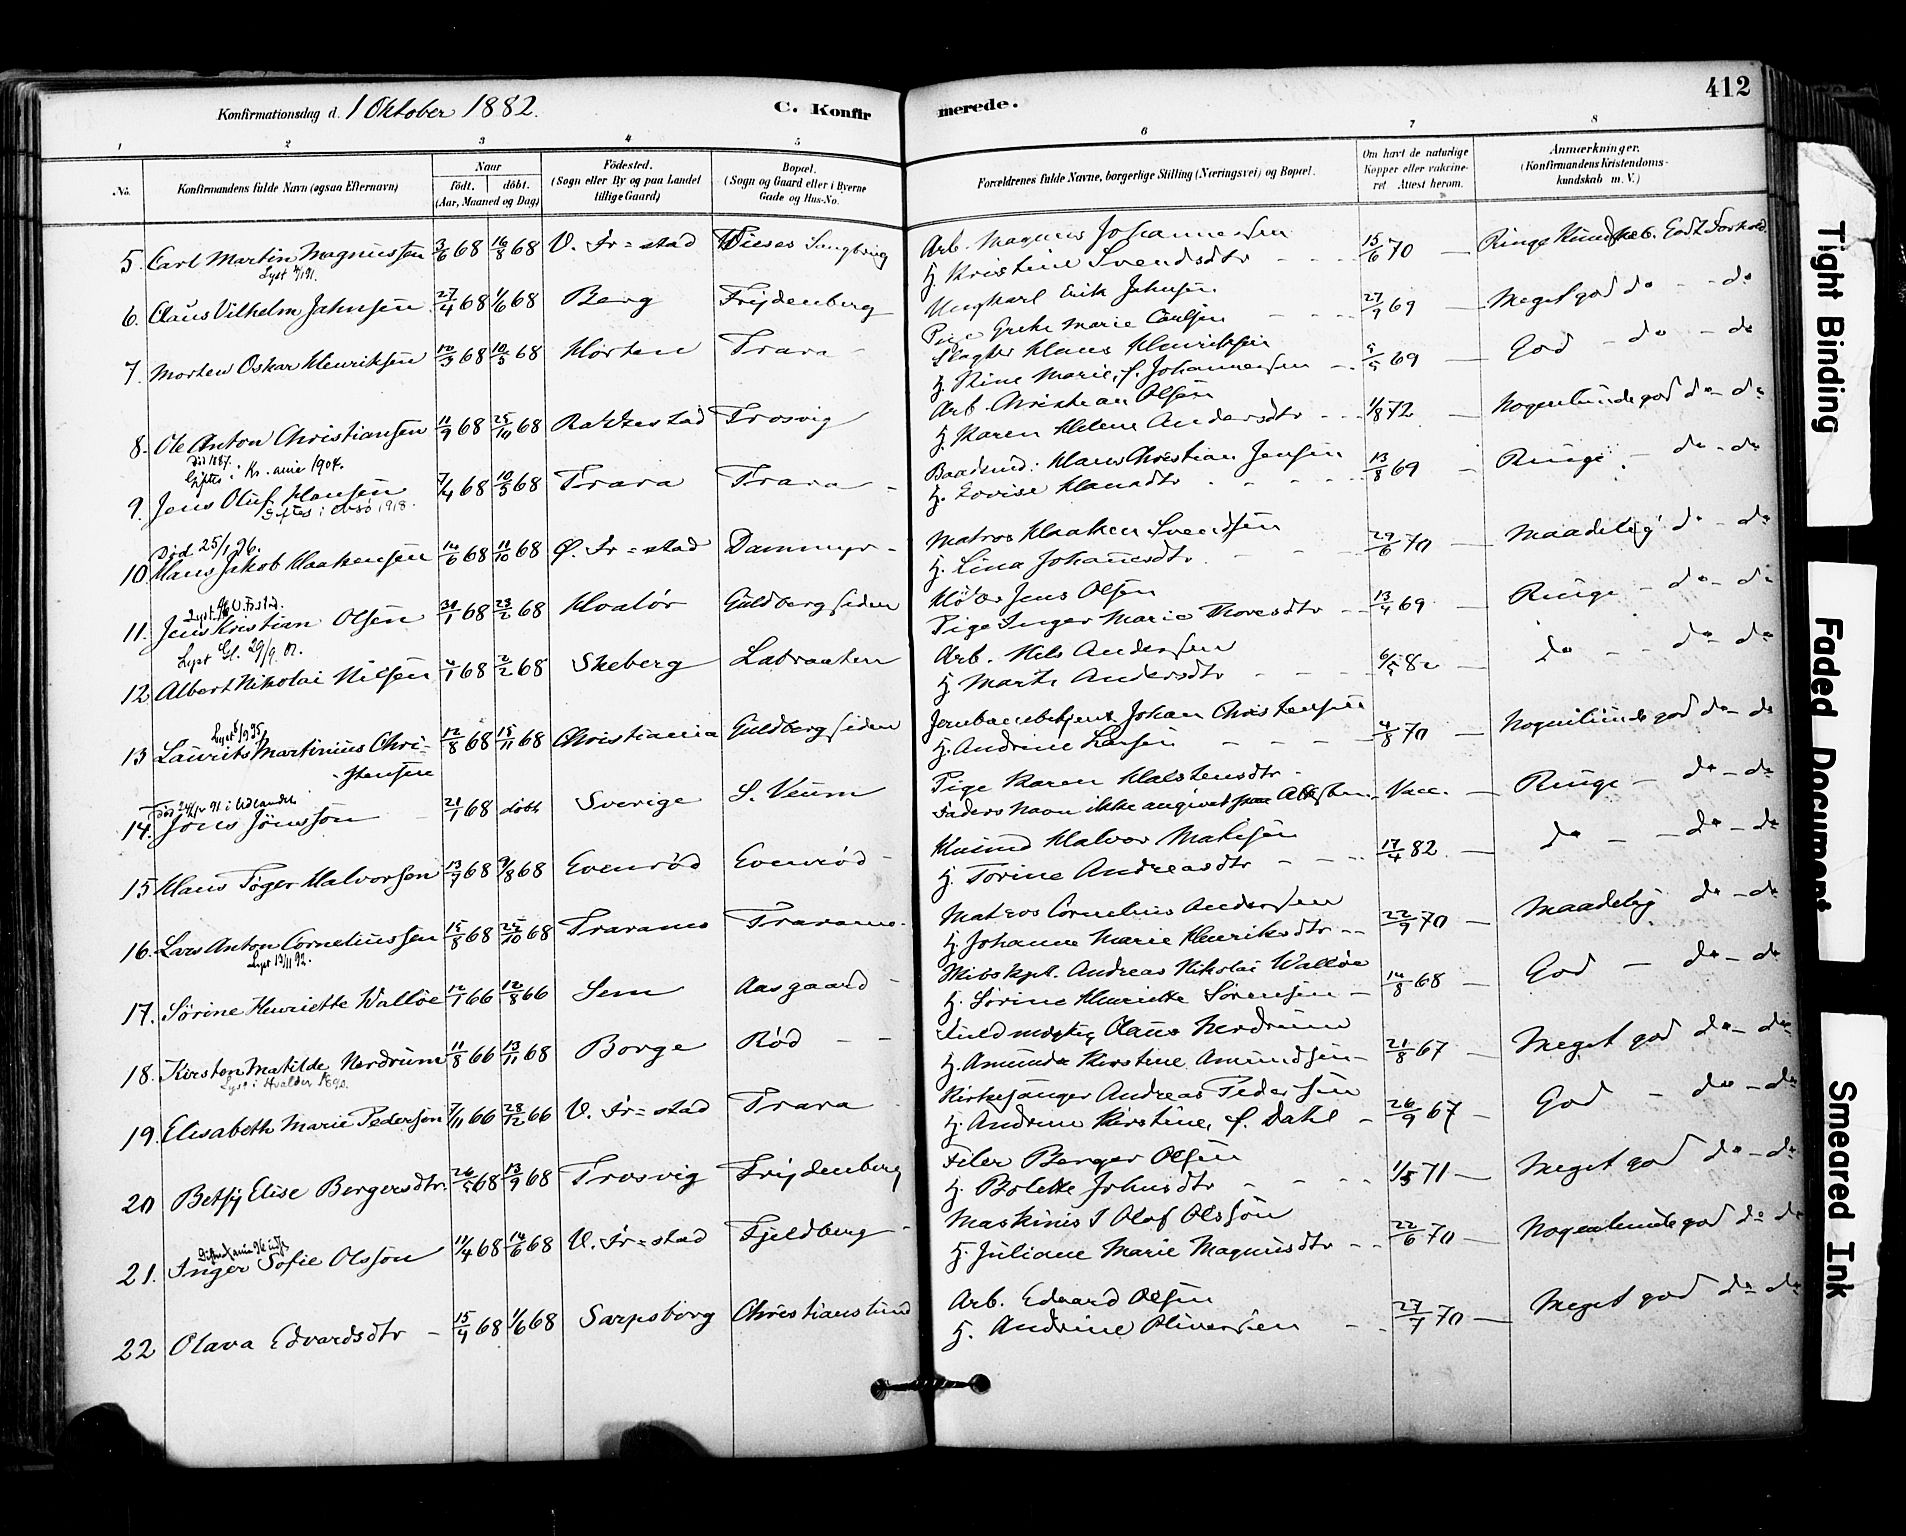 412
Konfirmationsdag d. 1 Oktober 1882.
C. Konfirmerede.
1 2 3 4 5 6 7 8
No. Konfirmandens fulde Navn (ogsaa Efternavn) Naar født. døbt. (Aar, Maaned og Dag) Födested. (Sogn eller By og paa Landet tillige Gaard) Bopæl. (Sogn og Gaard eller i Byerne Gade og Hus-No. Forældrenes fulde Navne, borgerlige Stilling (Næringsvei) og Bopæl. Om havt de naturlige Kopper eller vakcineret Attest herom. Anmærkninger. (Konfirmandens Kristendomskundskab m. V.)
5. Carl Martin Magnussen 3/6 68 16/8 68 V. Fr=stad Arb. Magnus Johannessen 15/6 70 — Ringe Kundskab. Godt Forhold.
H. Kristine Svendsdtr
6. Claus Vilhelm Jahnsen 27/4 68 1/6 68 Berg Frydenberg Ungkarl Erik Jahnsen 27/9 69 — Meget god do - do
Pige Grethe Marie Carlsen
7. Morten Oskar Henriksen 10/3 68 10/5 68 Horten Trara - Slagter Klaus Henriksen 9/5 69 — God - do - do
H. Stine Marie, f. Johannessen
8. Ole Anton Christiansen 11/9 68 25/10 68 Rakkestad Trosvig Arb. Christian Olsen 1/8 72 — Nogenlunde god do - do
H. Karen Helene Andersdtr
Død 1887.
9. Jens Oluf Hansen 7/4 68 10/5 68 Trara Trara - Baadsmd. Hans Christian Jensen 13/8 69 - Ringe - do - do
H. Lovise Hansdtr
Død 25/1 96.
10 Hans Jakob Haakensen 14/6 68 11/10 68 Ø. Fr=stad Dammyr - Matros Haaken Svendsen 29/6 70 — Maadelig do - do
H. Lina Johannesdtr
11. Jens Kristian Olsen 30/1 68 23/2 68 Hvalør Guldbergsiden Jens Olsen 13/4 69 Ringe - do - do
Pige Inger Marie Thoresdtr
Lyst Gl. 29/9. 01.
12 Albert Nikolai Nilsen 4/1 68 2/2 68 Skeberg Labraaten Arb. Nils Andersen 6/5 82 — do - do - do
H. Marte Andersdtr
13 Laurits Martinius Christensen 12/8 68 15/11 68 Christiania Guldbergsiden Jernbanebetjent Johan Christensen 4/8 70 — Nogenlunde god do - do
H. Andrine Larsen
14. Jöns Jönsson 21/1 68 döbt Sverige S. Veum Pige Karen Halstensdtr. Vacc. — Ringe - do - do
Faders Navn ikke angivet paa Attesten
15 Hans Töger Halvorsen 13/7 68 9/8 68 Evenrød Evenrød - Husmd Halvor Matisen 17/4 82 — do - do - do
H. Torine Andreasdtr
16. Lars Anton Corneliussen 15/8 68 25/10 68 Traramo Traramo - Matros Cornelius Andersen 22/9 70 — Maadelig do - do
Lyst 13/11 92. H. Johanne Marie Henriksdtr
17. Sørine Henriette Walløe 12/1 66 12/8 66 Sem Aasgaard - Skibskpt. Andreas Nikolai Walløe 14/8 68 - God - do - do
H. Sørine Henriette Sørensen
18. Kirsten Matilde Nerdrum 11/8 66 13/11 68 Borge Rød - - Fuldmægtig Claus Nerdrum 21/8 67 - Meget god do - do
H. Amunda Kirstine Amundsen
19. Elisabeth Marie Pedersen 7/11 66 28/12 66 V. Fr=stad Trara Kirkesanger Andreas Pedersen 26/9 67 - God - do - do
H. Andrine Kirstine, f. Dahl
20 Betsy Elise Bergersdtr. 26/5 68 13/9 68 Trosvig Frydenberg Filer Berger Olsen 1/5 71 — Meget god do - do
H. Bolette Johnsdtr
21. Inger Sofie Olsson 11/4 68 14/6 68 V. Fr=stad Fjeldberg - Maskinist Olof Olsson 22/6 70 — Nogenlunde god do do
H. Juliane Marie Magnusdtr
22 Olava Edvardsdtr - 15/4 68 1/6 68 Sarpsborg Christianslund Arb. Edvard Olsen 27/7 70 — Meget god do do
H. Andrine Oliversen
Tight Binding
Faded Document
Smeared Ink